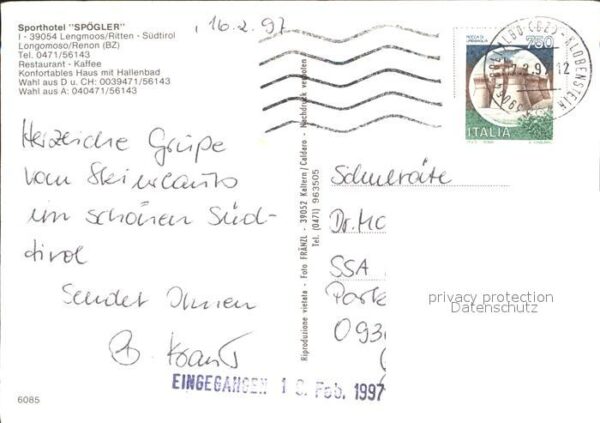 Sporthotel "SPÖGLER"
I - 39054 Lengmoos/Ritten - Südtirol
Longomoso/Renon (BZ)
Tel. 0471/56143
Restaurant - Kaffee
Konfortables Haus mit Hallenbad
Wahl aus D u. CH: 0039471/56143
Wahl aus A: 040471/56143
16.2.97
Herzliche Grüße
vom Skiurlaub
im schönen Süd-
tirol
sendet Ihnen
B.
EINGEGANGEN 1 Feb. 1997
6085
Riproduzione vietata - Foto FRÄNZL - 39052 Kaltern/Caldaro - Nachdruck verboten
Tel. (0471) 963505
750
ITALIA
KLOBENSTEIN
Schulräte
Dr. Mo
SSA
Park
093
privacy protection
Datenschutz